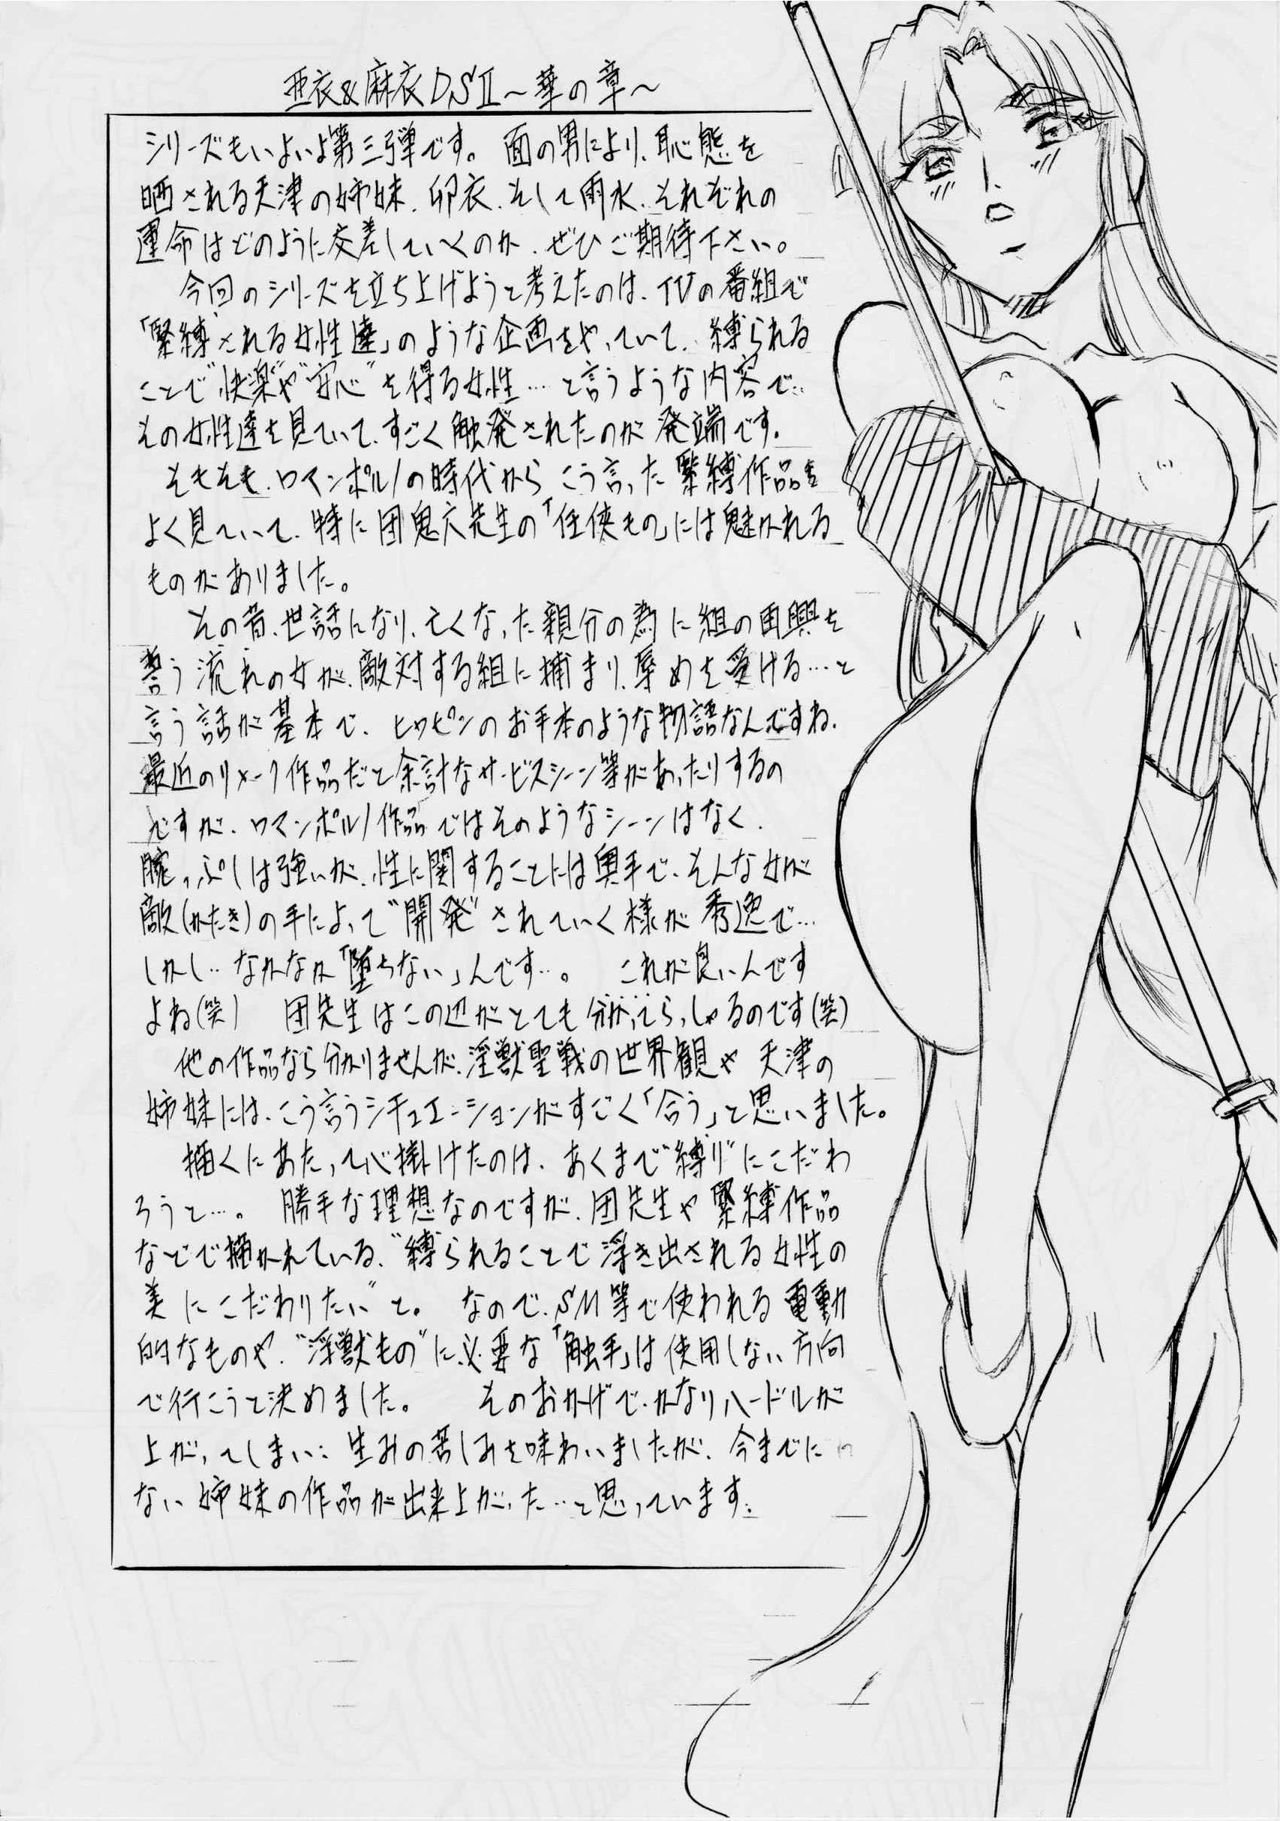 亜衣&麻衣DSⅡ～華の章～
シリーズもいよいよ第三弾です。 面の男により、恥態を
晒される天津の姉妹、卯衣、そして雨水、それぞれの
運命はどのように交差していくのか、ぜひご期待下さい。
今回のシリーズを立ち上げようと考えたのは、TVの番組で
「緊縛される女性達」のような企画をやっていて、縛られる
ことで“快楽”や“安心”を得る女性…と言うような内容で‥
その女性達を見ていて、すごく触発されたのが発端です。
そもそも、ロマンポルノの時代からこう言った緊縛作品を
よく見ていて、特に団鬼六先生の「任侠もの」には魅かれる
ものがありました。
その昔、世話になり、亡くなった親分の為に組の再興を
誓う流れの女が、敵対する組に捕まり、辱めを受ける…と
言う話が基本で、ヒロピンのお手本のような物語なんですね。
最近のリメーク作品だと余計なサービスシーン等があったりするの
ですが、ロマンポルノ作品ではそのようなシーンはなく、
腕っぷしは強いが、性に関することには奥手で、そんな女が
敵(かたき)の手によって“開発”されていく様が秀逸で…
しかし‥なかなか「堕ちない」んです…。 これが良いんです
よね(笑) 団先生はこの辺がとても分かってらっしゃるのです(笑)
他の作品なら分かりませんが、淫獣聖戦の世界観や天津の
姉妹には、こう言うシチュエーションがすごく「合う」と思いました。
描くにあたって心掛けたのは、あくまで“縛り”にこだわ
ろうと…。 勝手な理想なのですが、団先生や緊縛作品
などで描かれている、“縛られることで浮き出される女性の
美にこだわりたい”と。 なので、SM等で使われる電動
的なものや、“淫獣もの”に必要な「触手」は使用しない方向
で行こうと決めました。 そのおかげで、かなりハードルが
上がってしまい‥生みの苦しみを味わいましたが、今までに
ない姉妹の作品が出来上がった…と思っています。